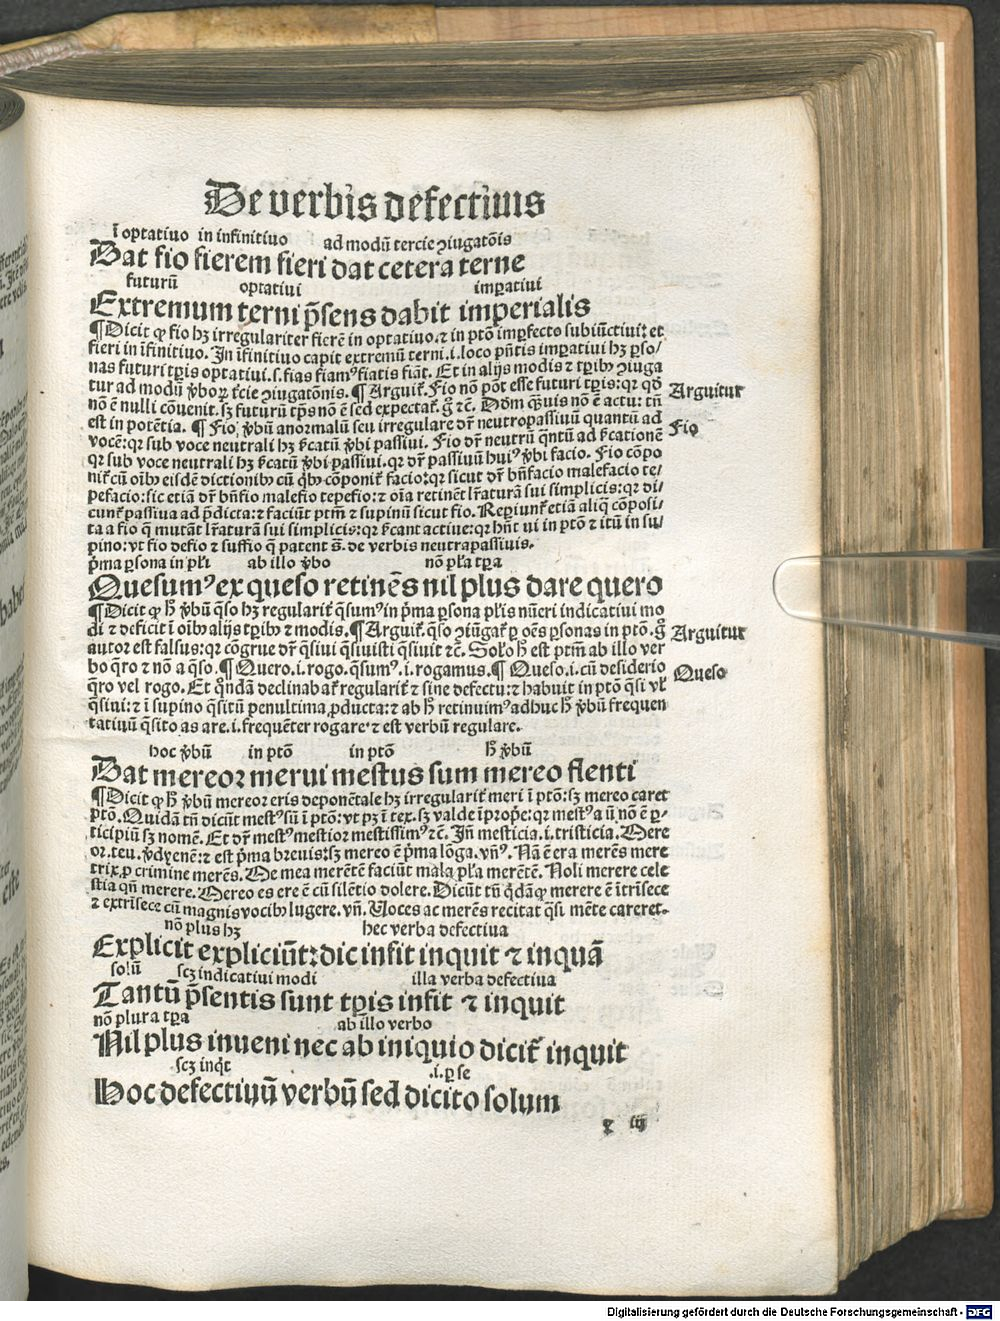 De verbis defectiuis
ī optatiuo in infinitiuo ad modū tercie ꝯiugatōis
Dat fio fierem fieri dat cetera terne
futurū optatiui imꝑatiui
Extremum terni p̄sens dabit imperialis
¶Dicit ꝙ fio hꝫ irregulariter fierē in optatiuo.⁊ in p̄tō imꝑfecto subiūctiui: et
fieri in īfinitiuo. In īfinitiuo capit extremū terni.i. loco p̄ntis imꝑatiui hꝫ ꝑso/
nas futuri tꝑis optatiui.s. fias fiamꝰ fiatis fiāt. Et in alijs modis ⁊ tꝑibꝫ ꝯiuga
tur ad modū v̄boꝝ t̄cie ꝯiugatōnis. ¶ Arguit̄. Fio nō pōt esse futuri tꝑis: qꝛ qd̄
Arguitur
nō ē nulli cōuenit. sꝫ futurū tp̄s nō ē sed expectat̄. g̊ ⁊c̄. Dd̄m qͣuis nō ē actu: tn̄
est in potētia. ¶ Fio, v̄bū anormalū seu irregulare dr̄ neutropassiuū quantū ad
Fio
vocē: qꝛ sub voce neutrali hꝫ s̄catū v̄bi passiui. Fio dr̄ neutrū qn̄tū ad s̄cationē
qꝛ sub voce neutrali hꝫ s̄catū v̄bi passiui. qꝛ dr̄ passiuū huiꝰ v̄bi facio. Fio cōpo
nit̄ cū oībꝫ eisdē dictionibꝫ cū qͥbꝫ cōponit̄ facio: qꝛ sicut dr̄ bn̄facio malefacio te/
pefacio: sic etiā dr̄ bn̄fio malefio tepefio: ⁊ oīa retinēt lr̄aturā sui simplicis: qꝛ di/
cunt̄ passiua ad p̄dicta: ⁊ faciūt ptm̄ ⁊ supinū sicut fio. Reꝑiunt̄ etiā aliqͣ cōposi/
ta a fio q̄ mutāt lr̄aturā sui simplicis: qꝛ s̄cant actiue: qꝛ hn̄t ui in p̄tō ⁊ itū in su/
pino: vt fio defio ⁊ suffio q̄ patent s̄. de verbis neutrapassiuis.
p̄ma ꝑsona in pl̄i ab illo v̄bo nō pl̄a tꝑa
Quesumꝰ ex queso retinēs nil plus dare quero
¶Dicit ꝙ h̄ v̄bū q̄so hꝫ regularit̄ q̄sumꝰ in p̄ma ꝑsona pl̄is nūeri indicatiui mo
di ⁊ deficit ī oībꝫ alijs tꝑibꝫ ⁊ modis. ¶ Arguit̄. q̄so ꝯiugat̄ ꝑ oēs ꝑsonas in p̄tō. g̊
Arguitur
autor est falsus: qꝛ cōgrue dr̄ q̄siui q̄siuisti q̄siuit ⁊c̄. Sol̄o h̄ est ptm̄ ab illo ver
bo q̄ro ⁊ nō a q̄so. ¶ Quero.i. rogo. q̄sumꝰ.i. rogamus. ¶ Queso.i. cū desiderio
Queso
q̄ro vel rogo. Et qͦndā declinabat̄ regularit̄ ⁊ sine defectu: ⁊ habuit in p̄tō q̄si vl̄
q̄siui: ⁊ ī supino q̄sitū penultima ꝓducta: ⁊ ab h̄ retinuimꝰ adhuc h̄ v̄bū frequen
tatiuū q̄sito as are.i. frequēter rogare ⁊ est verbū regulare.
hoc v̄bū in p̄tō in p̄tō h̄ v̄bū
Dat mereor merui mestus sum mereo flenti
¶Dicit ꝙ h̄ v̄bū mereor eris deponētale hꝫ irregularit̄ meri ī p̄tō: sꝫ mereo caret
p̄tō. Quidā tn̄ dicūt mestꝰ sū ī p̄tō: vt pꝫ ī tex. sꝫ valde īprop̄e: qꝛ mestꝰ a ū nō ē ꝑ-
ticipiū sꝫ nomē. Et dr̄ mestꝰ mestior mestissimꝰ ⁊c̄. In̄ mesticia.i. tristicia. Mere
or. teu. v̄dyenē: ⁊ est p̄ma breuis: sꝫ mereo ē p̄ma lōga. vn̄ꝰ. Nā ē era merēs mere
trix ꝓ crimine merēs. Me mea merētē faciūt mala pl̄a merētē. Noli merere cele
stia qn̄ merere. Mereo es ere ē cū silētio dolere. Dicūt tn̄ qͥdā ꝙ merere ē ītrīsece
⁊ extrīsece cū magnis vocibꝫ lugere. vn̄. Voces ac merēs recitat q̄si mēte careret.
nō plus hꝫ hec verba defectiua
Explicit expliciūt: dic infit inquit ⁊ inquā
solū scꝫ indicatiui modi illa verba defectiua
Tantū p̄sentis sunt tꝑis infit ⁊ inquit
nō plura tꝑa ab illo verbo
Nil plus inueni nec ab iniquio dicit̄ inquit
scꝫ inqͥt .i. ꝑ se
Hoc defectiuū verbū sed dicito solum